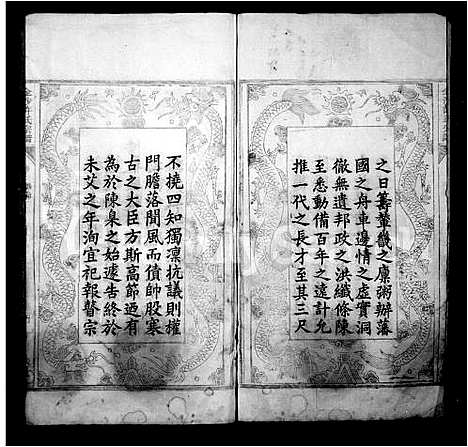 之日籌輦轂之廩粥辦藩
國之舟車邊情之虛實洞
徹無遺邦政之洪纖條陳
至悉動備百年之遠計允
推一代之長才至其三尺
不撓四知獨凜抗議則權
門膽落聞風而債帥股寒
古之大臣方斯高節迺有
為於陳臬之始遽告終於
未艾之年洵宜祀報瞽宗